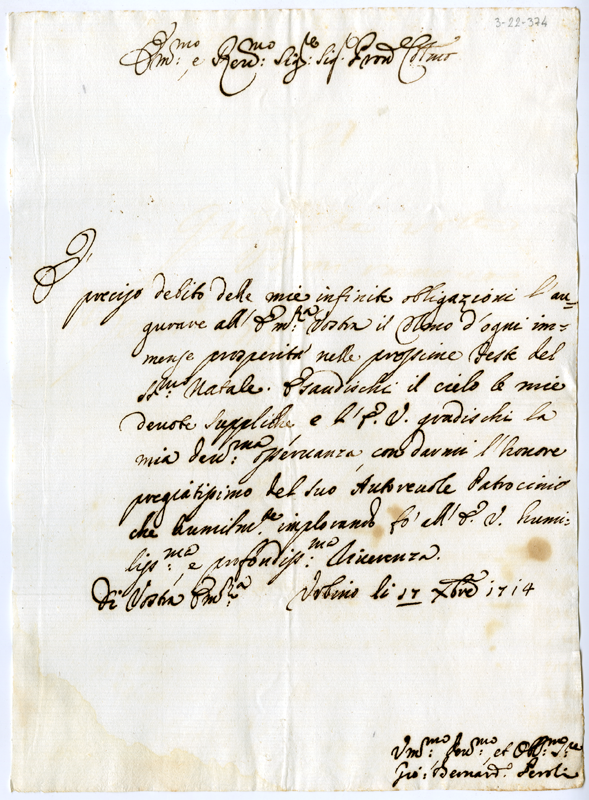 3-22-374
Em.mo e Rev.mo Sig.re Sig.r Pron Coll.mo
È
preciso debito delle mie infinite obligazioni l'au-
gurare all' Em.za Vostra il colmo d'ogni im-
mense prosperità nelle prossime Feste del
SS.mo Natale. Esaudischi il cielo le mie
devote suppliche e l' E. V. gradischi la
mia dev.ma osservanza, con darmi l'honore
pregiatissimo del suo Autorevole Patrocinio
che humilm.te implorando fò all' E. V. humi-
liss.ma e profondiss.ma Riverenza.
Di Vostra Em.za Urbino li 17 Xbre 1714
Um.mo Dev.mo et Obl.mo S.re
Gio: Bernard.o